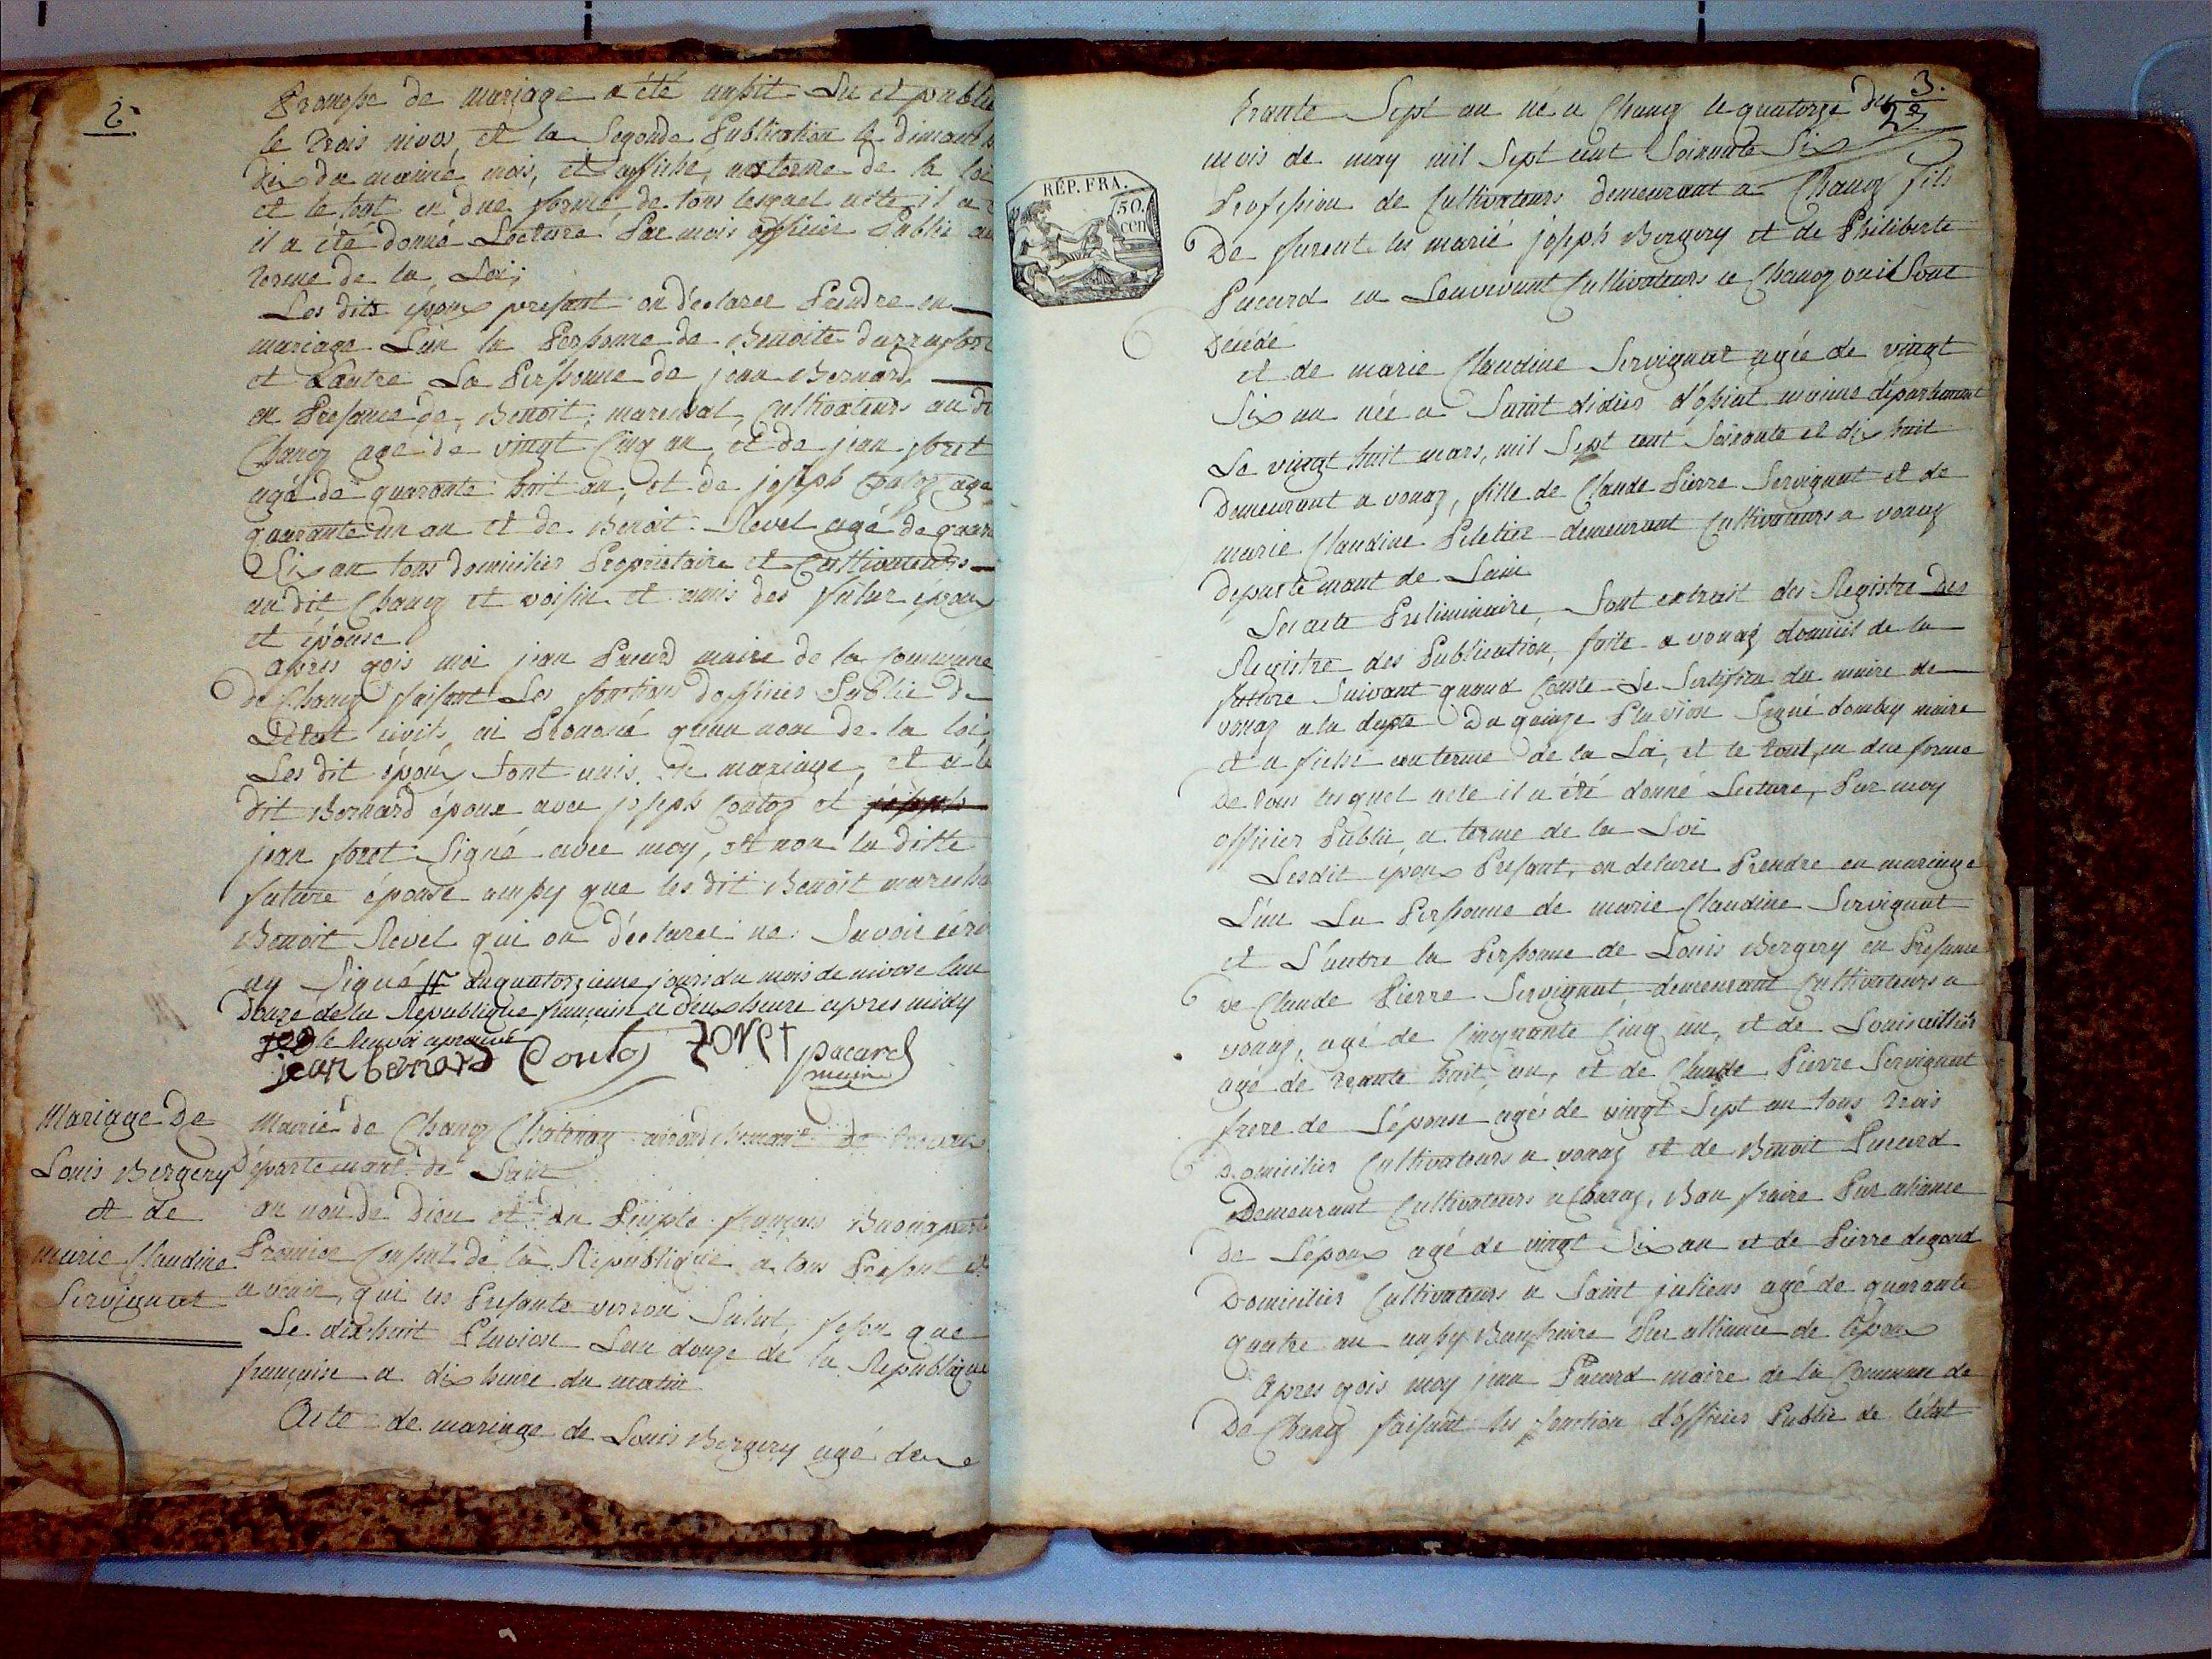 2.
Promesse de mariage a été ausit Lu et publié
le trois nivos, et la Segonde Publication le dimanch
dix du maimé mois, et affiché, au terme de la loi
et le tout en due forme, de tous lesquel acte il a
il a été donné Lecture Par mois officier Public au
terme de la Loi,
Les dits époux presant on déclarer Prendre en
mariage L'un la Personne de Benoite
et L'autre La Personne de jean Bernard
en Presance de Benoit marechal, Cultivateurs au dit
Chanoz age de vingt Cinq an, et de jean foret
agé de quarante huit an, et de joseph Contoz age
quarante un an et de Benoit Revel agé de quara
Six an tous domicilier Proprietaire et Cultivateurs
au dit Chanoz et voisin et amis des futur époux
et épouse
apres qois moi jean Pacard maire de la Commune
de Chanoz faisant Les fontion d'officier Public de
L'état civils, ai Prononcé qu'au nom de la loi,
Les dit époux Sont unis en mariage, et a le
dit Bernard époux avec joseph Contoz et joseph
jean foret Signé avec moy, et non la ditte
future épouse ainsy que les dit Benoit marecha
Benoit Revel qui on déclarer ne Savoir écri
ny Signé # du quatorzieme jours du mois de nivose l'an
Douze de la République française a deux heure apres midy
le Renvoi aprouvé
jean bernard Contoz foret pacard
maire
Mariage De
Louis Bergery
et de
marie Claudine
Servignat
Mairie de Chanoz Chatenay arrondissemant de Trevoux
Département de L'ain
au nom de Dieu et du Peuple français Buonaparte
Premier Consul de la République a tous Present et
a venir, qui les Presante verron Salut, que
Le dix huit Pluviose L'an douze de la République
française a dix heure du matin
Acte de mariage de Louis Bergery agé de
3.
2
RÉP. FRA.
50.
cen
trante Sept an né a Chanoz le quatorze du
mois de may mil Sept cent Soixante Six
Profession de Cultivateurs demeurant a Chanoz fils
De furent les marié joseph Bergery et de Philiberte
Pacard en Leur vivant Cultivateurs a Chanoz ou il Sont
Décédé
et de marie Claudine Servignat agée de vingt
Six an née a Saint didier d'ossiat maime département
Le vingt huit mars, mil Sept cent Soixante et dix huit
Demeurant a vonaz, fille de Claude Pierre Servignat et de
marie Claudine Peletier demeurant Cultivateurs a vonaz
departemant de Lain
Les acte Preliminaire, Sont extrait des Registre des
Registre des Publication, faite a vonaz domicil de la
future Suivant quand Conste Le Sertifica du maire de
vonaz a la date Du quinze Pluviose Signé dombey maire
et afiché au terme de la Loi, et le tout en due forme
De tous lesquel acte il a été donné Lecture, Par moy
officier Public a terme de la Loi
Lesdit époux Presant, on déclarer Prendre en mariage
L'un La Personne de marie Claudine Servignat
et L'autre la Personne de Louis Bergery en Presance
de Claude Pierre Servignat, demeurant Cultivateurs a
vonaz, agé de Cinquante Cinq an, et de Louis
agé de trante huit an, et de Claude Pierre Servignat
frere de L'épouse agés de vingt Sept an tous trois
Domicilier Cultivateurs a vonaz et de Benoit Pacard
Demeurant Cultivateurs a Chanoz, Bau fraire Par aliance
de L'époux agé de vingt Six an et de Pierre degoud
Domicilier Cultivateurs a Saint juliens agé de quarante
quatre an ausy Baufraire Par alliance de l'époux
Apres qois moy jean Pacard maire de la Commune de
De Chanoz faisant les fontion d'officier Public de l'état